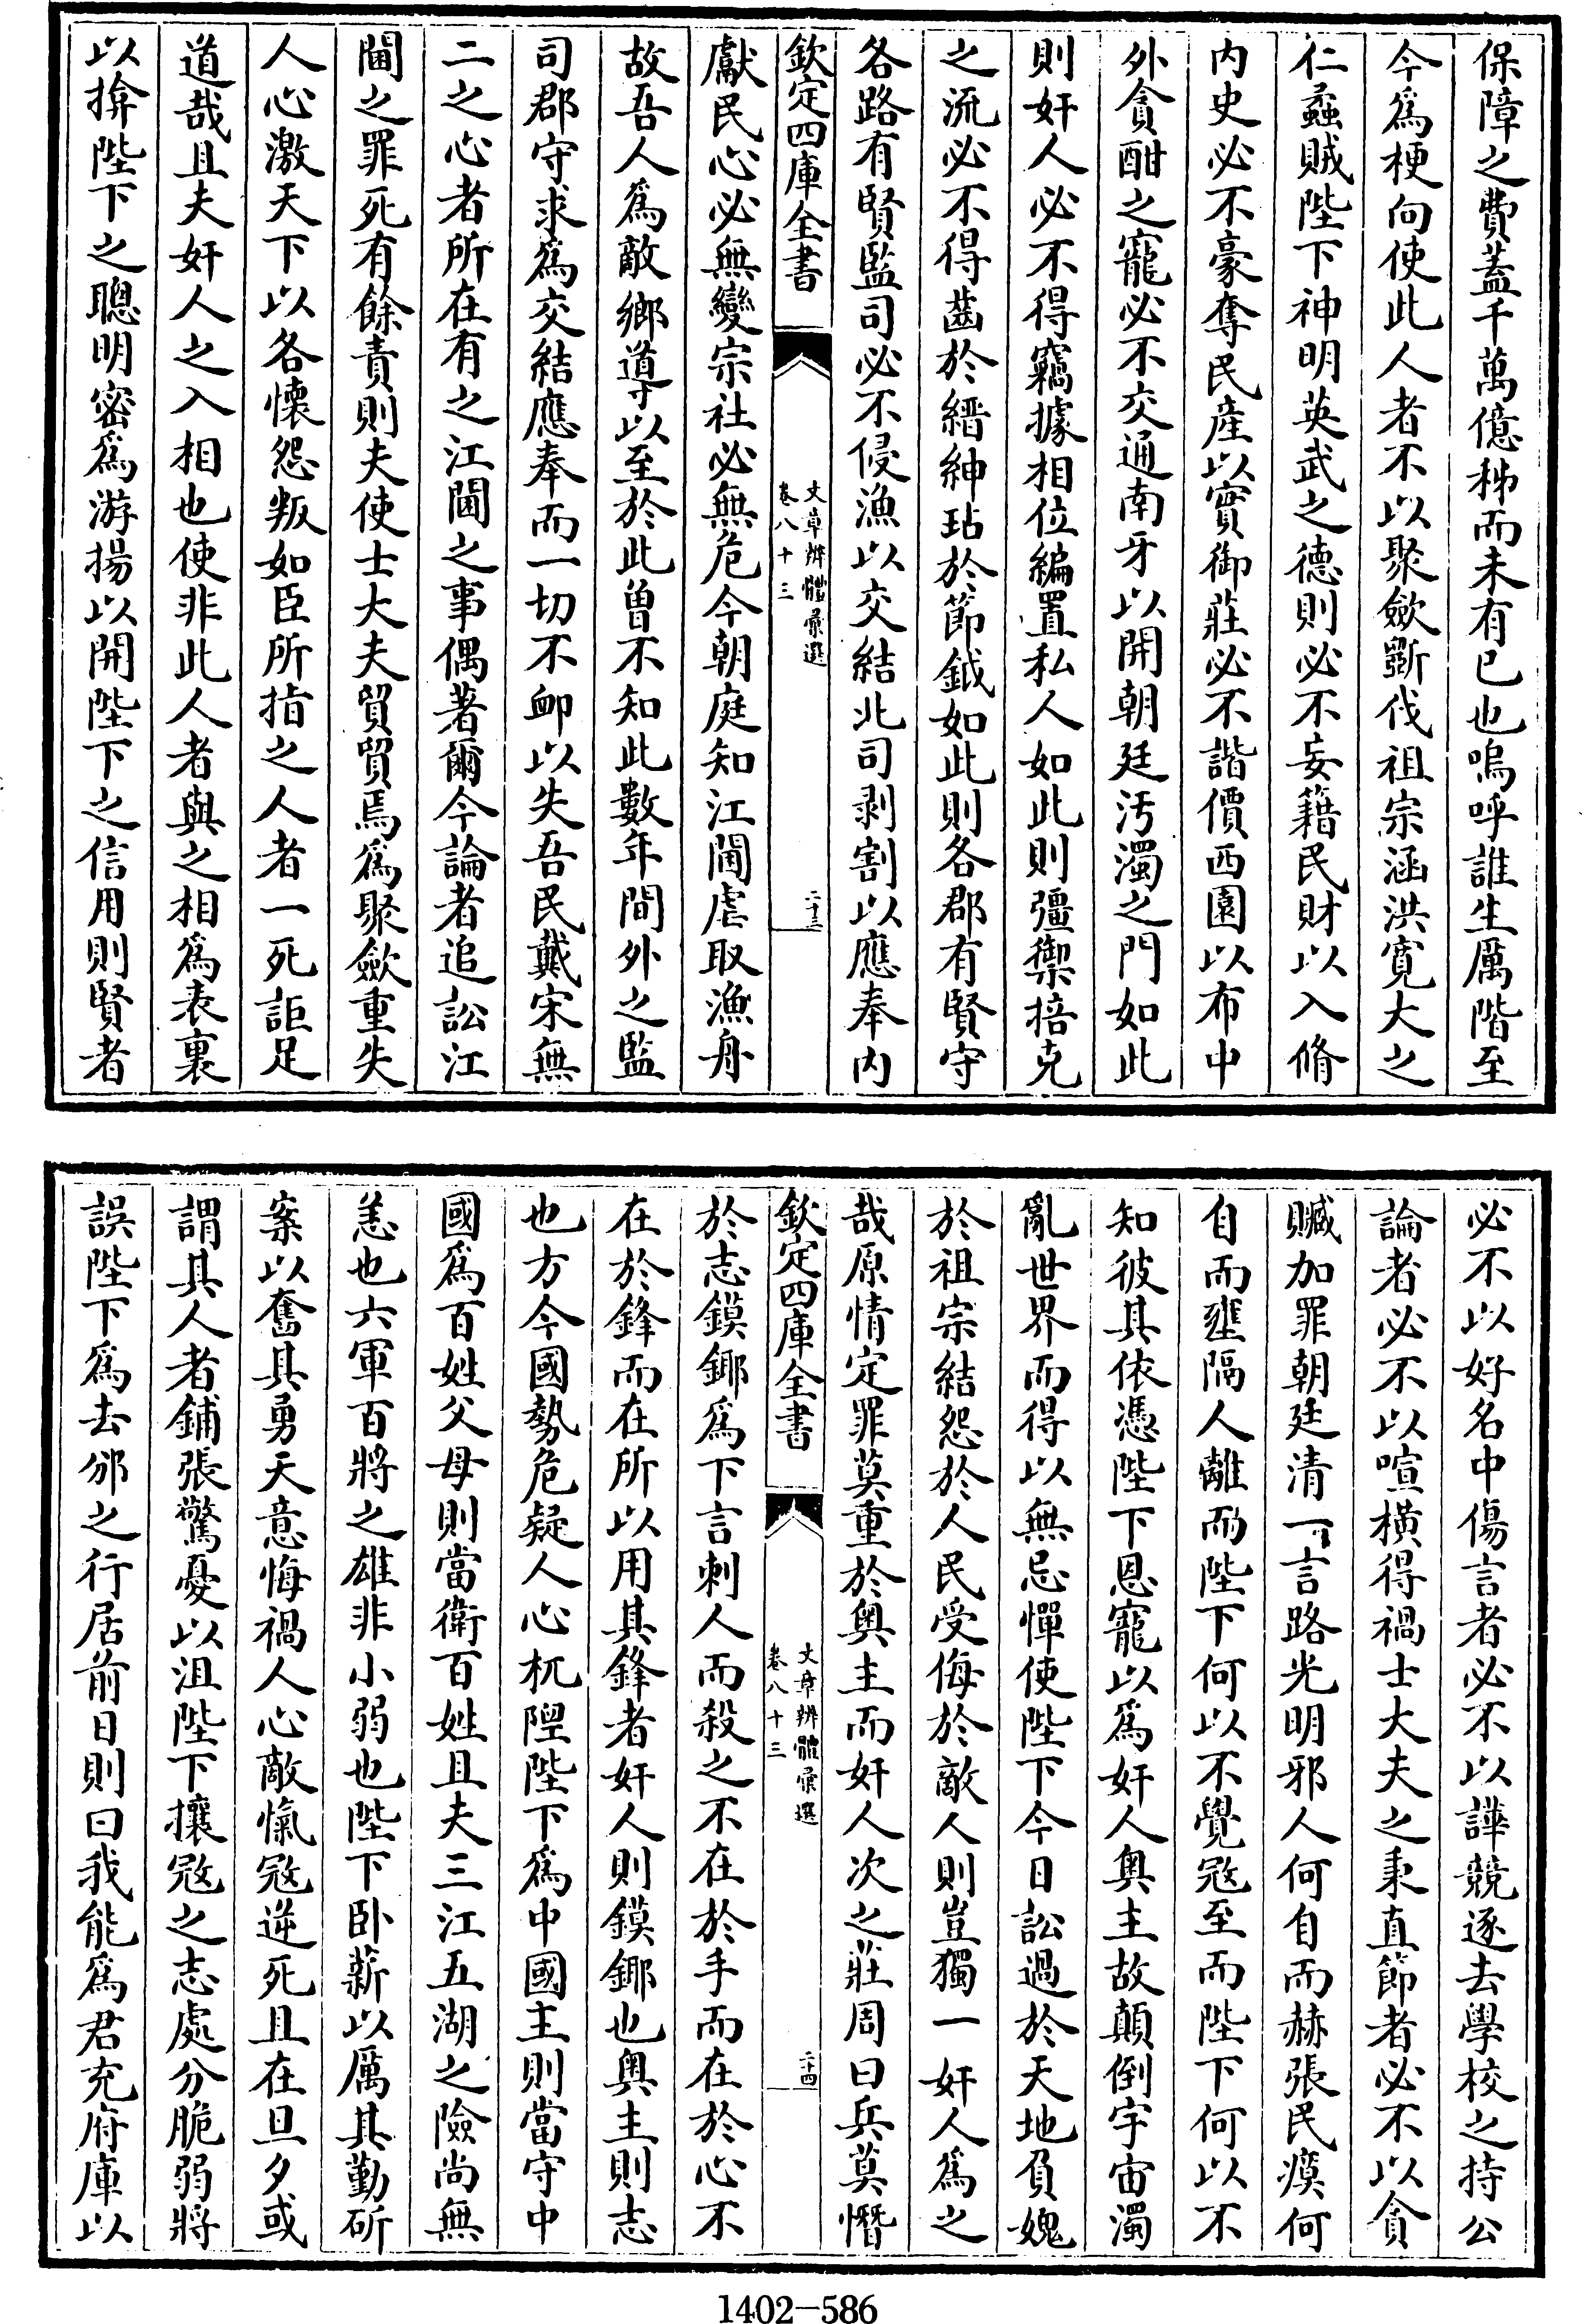 保障之費蓋千萬億秭而未有已也嗚呼誰生厲階至
今爲梗向使此人者不以聚斂斵伐祖宗涵洪寛大之
仁蟊賊陛下神明英武之德則必不妄籍民財以入脩
内史必不豪奪民産以實御莊必不諧價西園以布中
外貪酣之寵必不交通南牙以開朝廷汚濁之門如此
則奸人必不得竊據相位編置私人如此則彊禦掊克
之流必不得齒於縉紳玷於節鉞如此則各郡有賢守
各路有賢監司必不侵漁以交結北司剥割以應奉内
欽定四庫全書
文章辨體彚選
卷八十三
二十三
獻民心必無變宗社必無危今朝庭知江閫虐取漁舟
故吾人爲敵鄉導以至於此曽不知此數年間外之監
司郡守求爲交結應奉而一切不䘏以失吾民戴宋無
二之心者所在有之江閫之事偶著爾今論者追訟江
閫之罪死有餘責則夫使士大夫貿貿焉爲聚斂重失
人心激天下以各懷怨叛如臣所指之人者一死詎足
道哉且夫奸人之入相也使非此人者與之相爲表裏
以揜陛下之聰明密爲游揚以開陛下之信用則賢者
必不以好名中傷言者必不以譁競逐去學校之持公
論者必不以喧横得禍士大夫之秉直節者必不以貪
贓加罪朝廷清一言路光明邪人何自而赫張民瘼何
自而壅隔人離而陛下何以不覺宼至而陛下何以不
知彼其依憑陛下恩寵以爲奸人奥主故顛倒宇宙濁
亂世界而得以無忌憚使陛下今日訟過於天地負媿
於祖宗結怨於人民受侮於敵人則豈獨一奸人爲之
哉原情定罪莫重於奥主而奸人次之莊周曰兵莫憯
欽定四庫全書
文章辨體彚選
卷八十三
二十四
於志鏌鎁爲下言刺人而殺之不在於手而在於心不
在於鋒而在所以用其鋒者奸人則鏌鎁也奥主則志
也方今國勢危疑人心杌隉陛下爲中國主則當守中
國爲百姓父母則當衛百姓且夫三江五湖之險尚無
恙也六軍百將之雄非小弱也陛下卧薪以厲其勤斫
案以奮其勇天意悔禍人心敵愾宼逆死且在旦夕或
謂其人者鋪張驚憂以沮陛下攘宼之志處分脆弱將
誤陛下爲去邠之行居前日則曰我能爲君充府庫以
1402－586